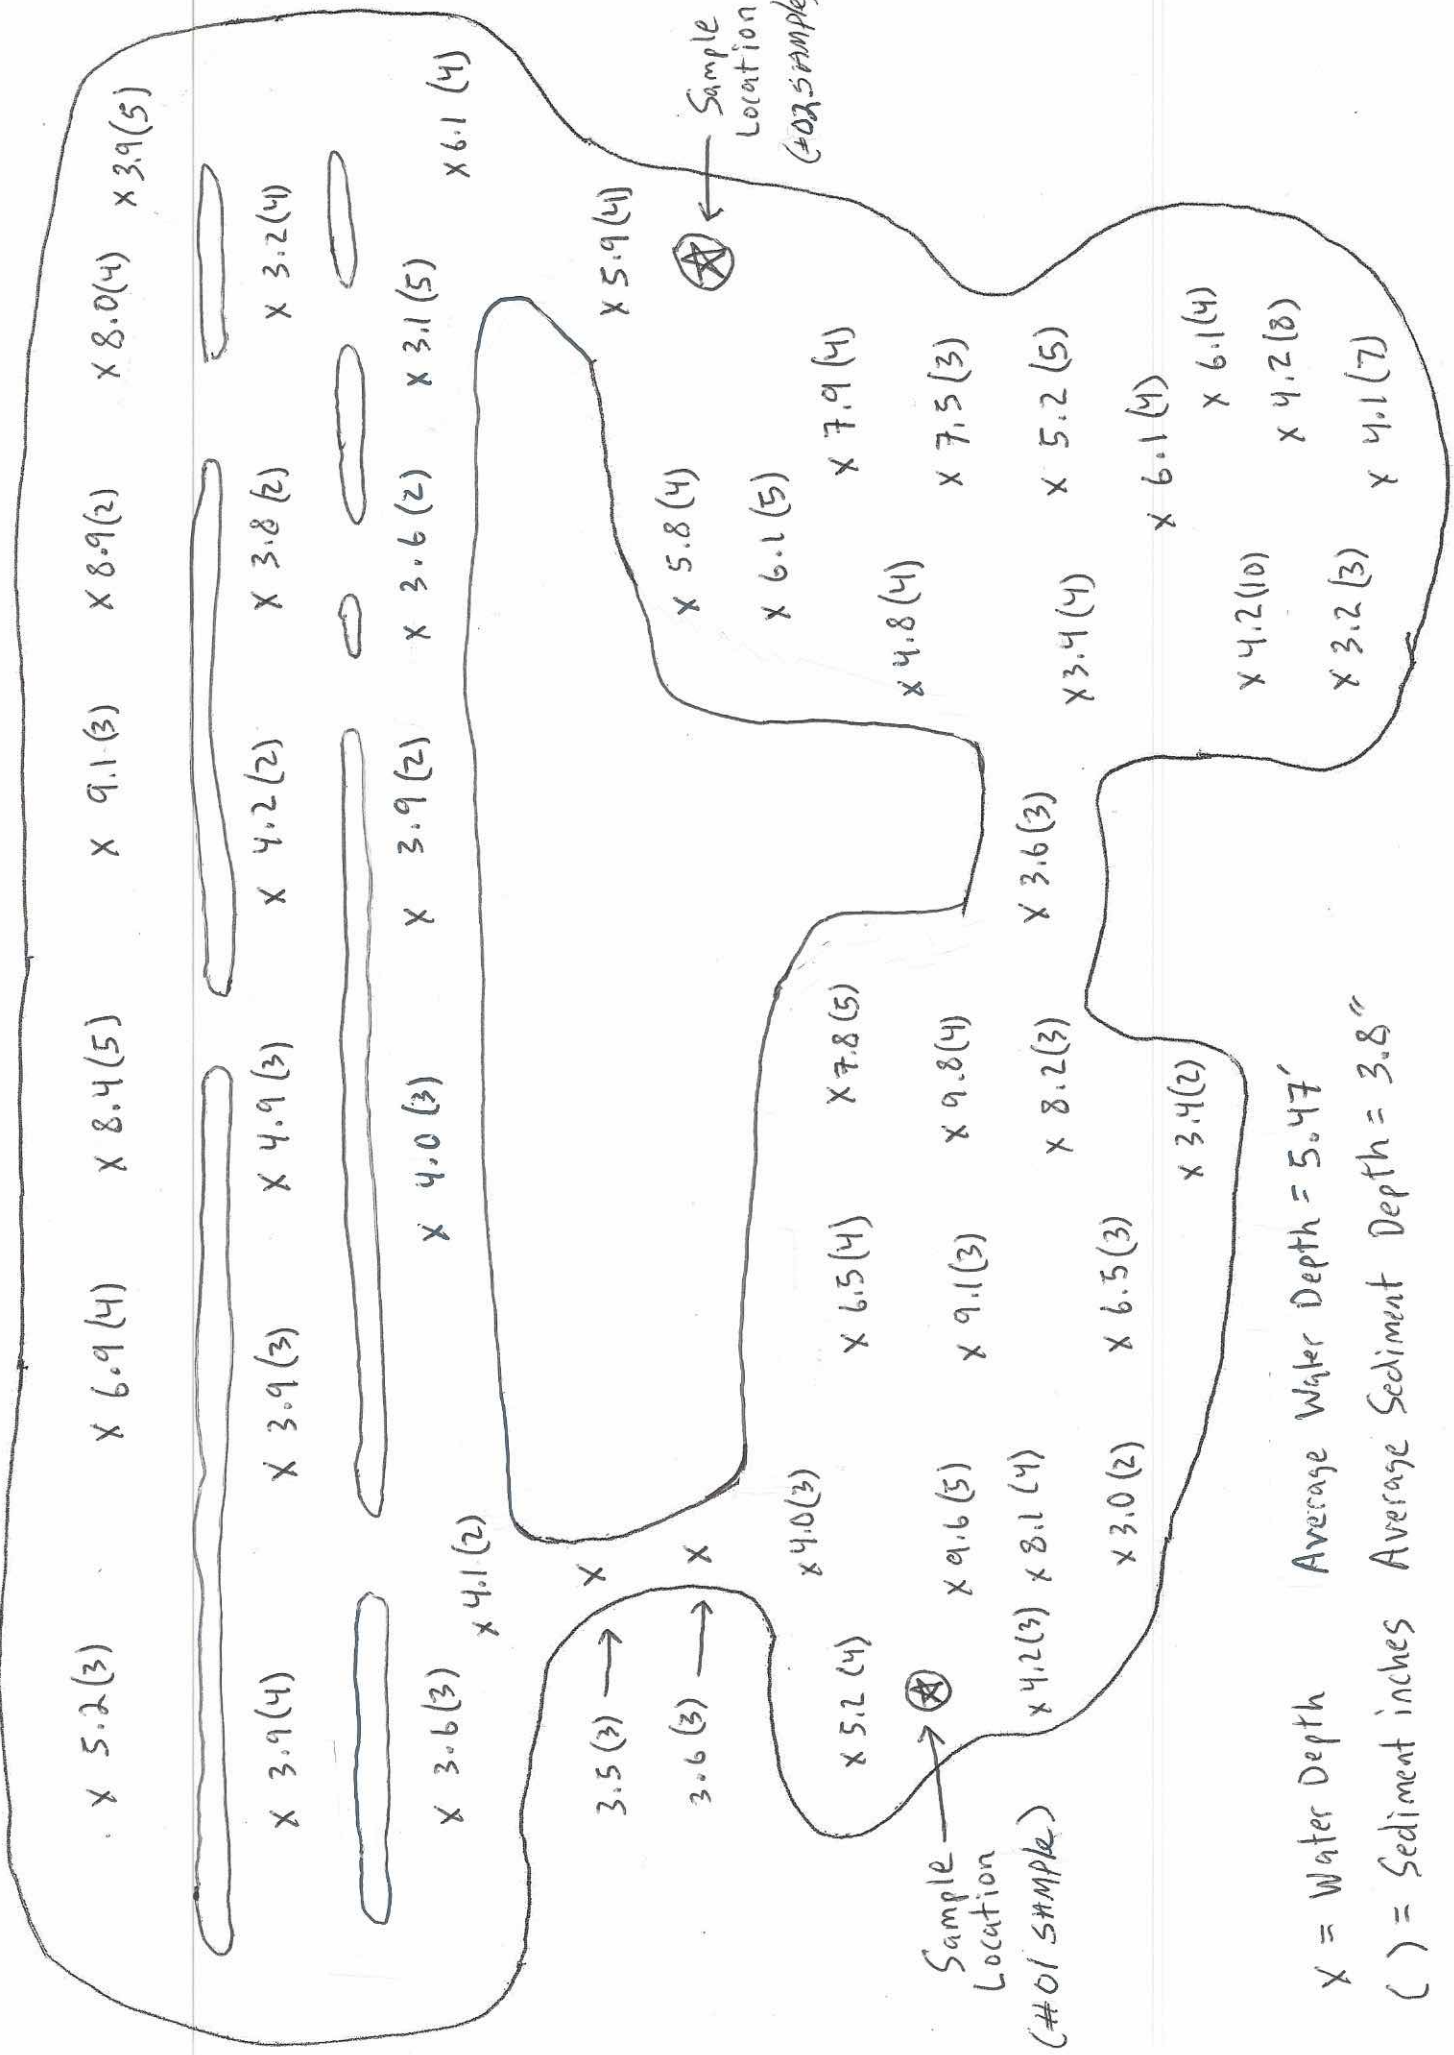 x 5.2(3)
x 6.9(4)
x 8.4(5)
x 9.1(3)
x 8.9(2)
x 8.0(4)
x 3.9(5)
x 3.9(4)
x 3.9(3)
x 4.9(3)
x 4.2(2)
x 3.8(2)
x 3.2(4)
x 3.6(3)
x 4.1(2)
x 4.0(3)
x 3.9(2)
x 3.6(2)
x 3.1(5)
x 6.1(4)
3.5(3) → x
3.6(3) → x
x 5.9(4)
← Sample
Location
(#02 SAMPLE)
x 5.8(4)
x 6.1(5)
x 7.9(4)
x 4.8(4)
x 7.5(3)
x 5.2(5)
x 3.4(4)
x 6.1(4)
x 6.1(4)
x 4.2(10)
x 4.2(8)
x 3.2(3)
x 4.1(7)
x 3.6(3)
x 5.2(4)
x 4.0(3)
x 6.5(4)
x 7.8(5)
x 9.6(5)
x 9.1(3)
x 9.8(4)
x 4.2(3)
x 8.1(4)
x 8.2(3)
x 3.0(2)
x 6.5(3)
x 3.4(2)
Sample →
Location
(#01 SAMPLE)
X = Water Depth Average Water Depth = 5.47'
( ) = Sediment inches Average Sediment Depth = 3.8"